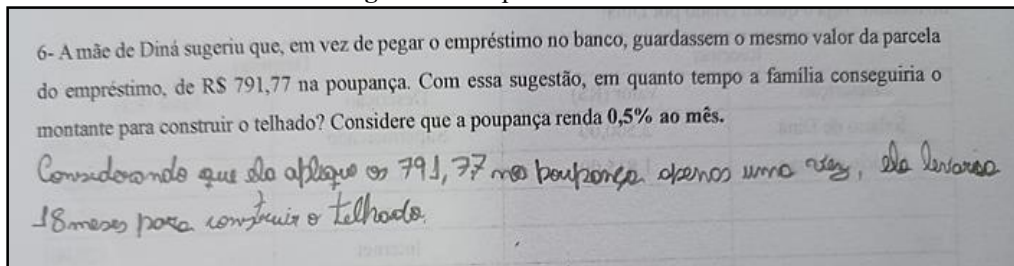 6- A mãe de Diná sugeriu que, em vez de pegar o empréstimo no banco, guardassem o mesmo valor da parcela
do empréstimo, de R$ 791,77 na poupança. Com essa sugestão, em quanto tempo a família conseguiria o
montante para construir o telhado? Considere que a poupança renda 0,5% ao mês.
Considerando que ela aplique os 791,77 na poupança apenas uma vez, ela levaria
18 meses para construir o telhado.